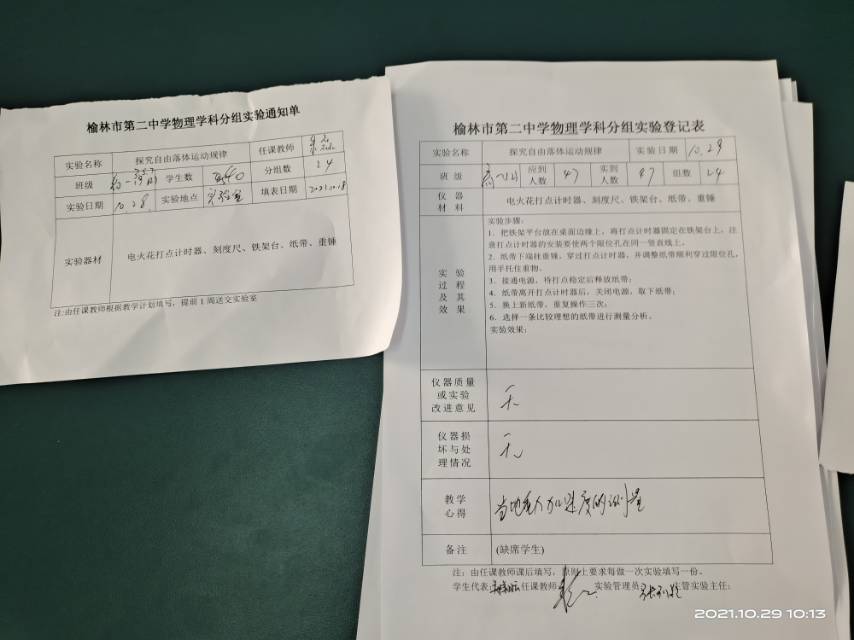 榆林市第二中学物理学科分组实验通知单
实验名称 探究自由落体运动规律 任课教师
班级 学生数 分组数 24
实验日期 10.28 实验地点 实验室 填表日期 2021.10.18
实验器材 电火花打点计时器、刻度尺、铁架台、纸带、重锤
注:由任课教师根据教学计划填写，提前1周送交实验室
榆林市第二中学物理学科分组实验登记表
实验名称 探究自由落体运动规律 实验日期 10.29
班级 应到人数 47 实到人数 47 组数 24
仪器材料 电火花打点计时器、刻度尺、铁架台、纸带、重锤
实验过程及其效果
实验步骤:
1．把铁架平台放在桌面边缘上，将打点计时器固定在铁架台上，注
意打点计时器的安装要使两个限位孔在同一竖直线上。
2．纸带下端挂重锤，穿过打点计时器，并调整纸带顺利穿过限位孔，
用手托住重物。
3．接通电源，待打点稳定后释放纸带;
4．纸带离开打点计时器后，关闭电源，取下纸带;
5．换上新纸带，重复操作三次;
6．选择一条比较理想的纸带进行测量分析。
实验效果:
仪器质量或实验改进意见 无
仪器损坏与处理情况 无
教学心得 当地重力加速度的测量
备注 (缺席学生)
注：由任课教师课后填写，原则上要求每做一次实验填写一份。
学生代表: 任课教师: 实验管理员: 主管实验主任:
2021.10.29 10:13